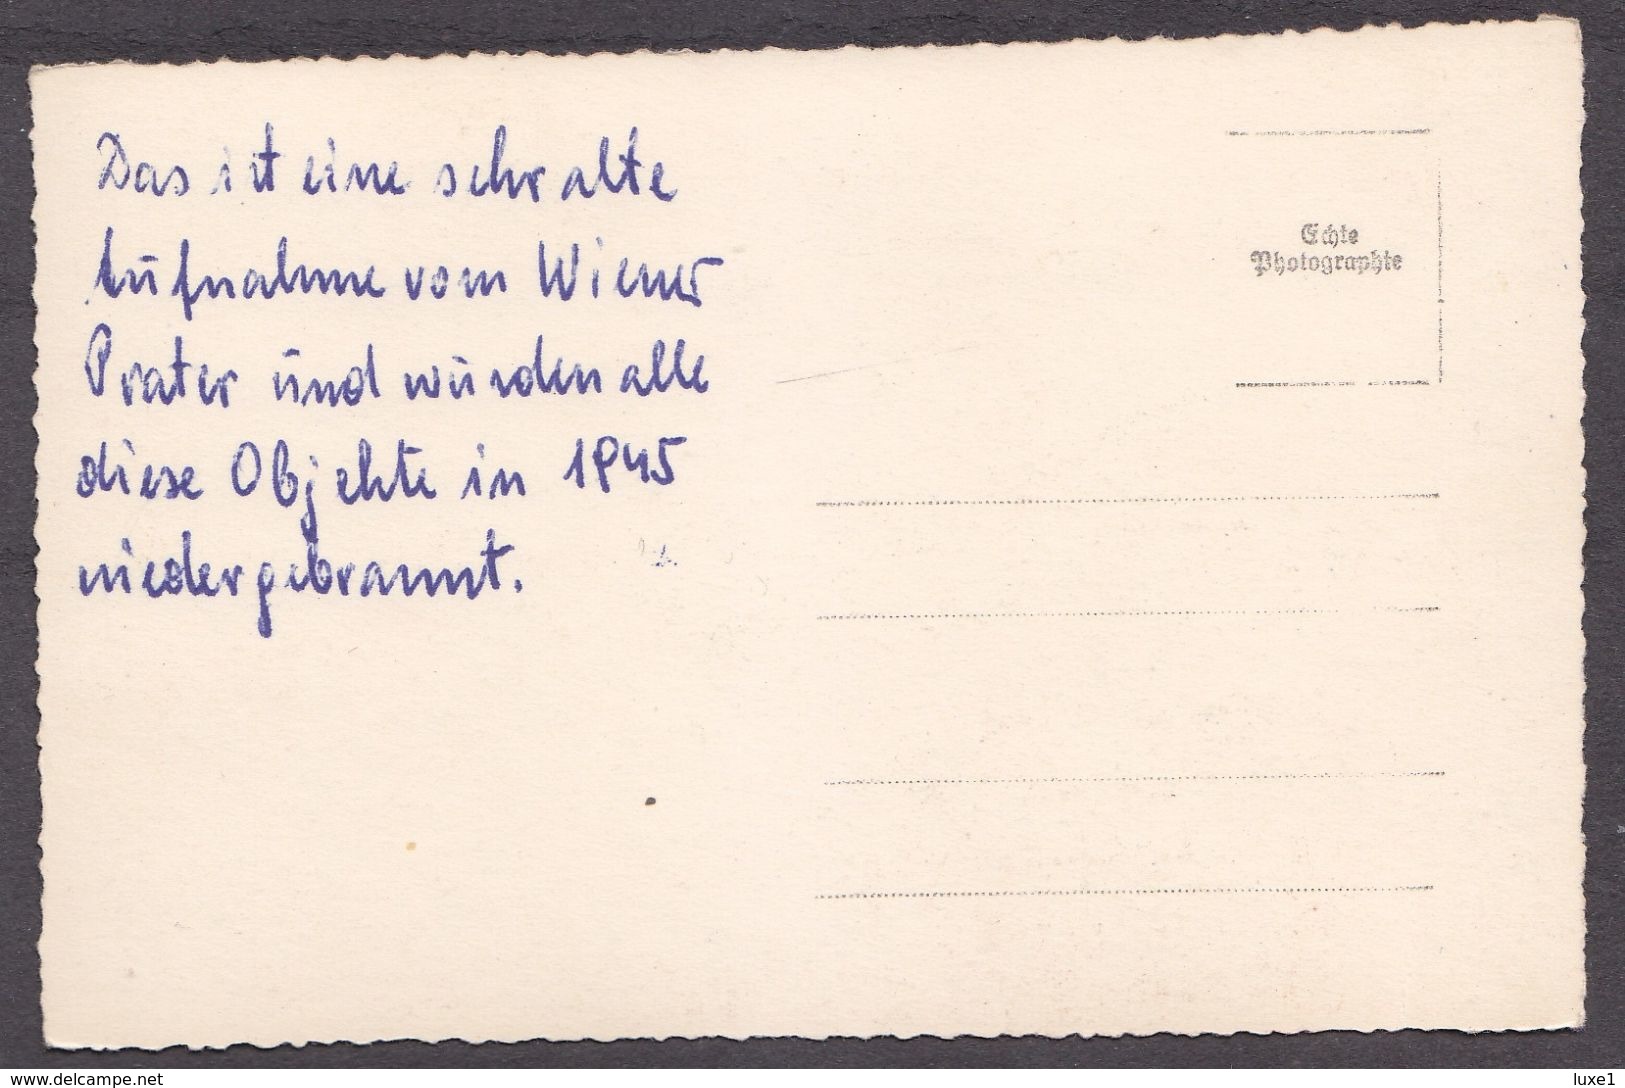 Das ist eine sehr alte
Aufnahme vom Wiener
Prater und wurden alle
diese Objekte in 1945
niedergebrannt.
Echte
Photographie
luxe1
www.delcampe.net